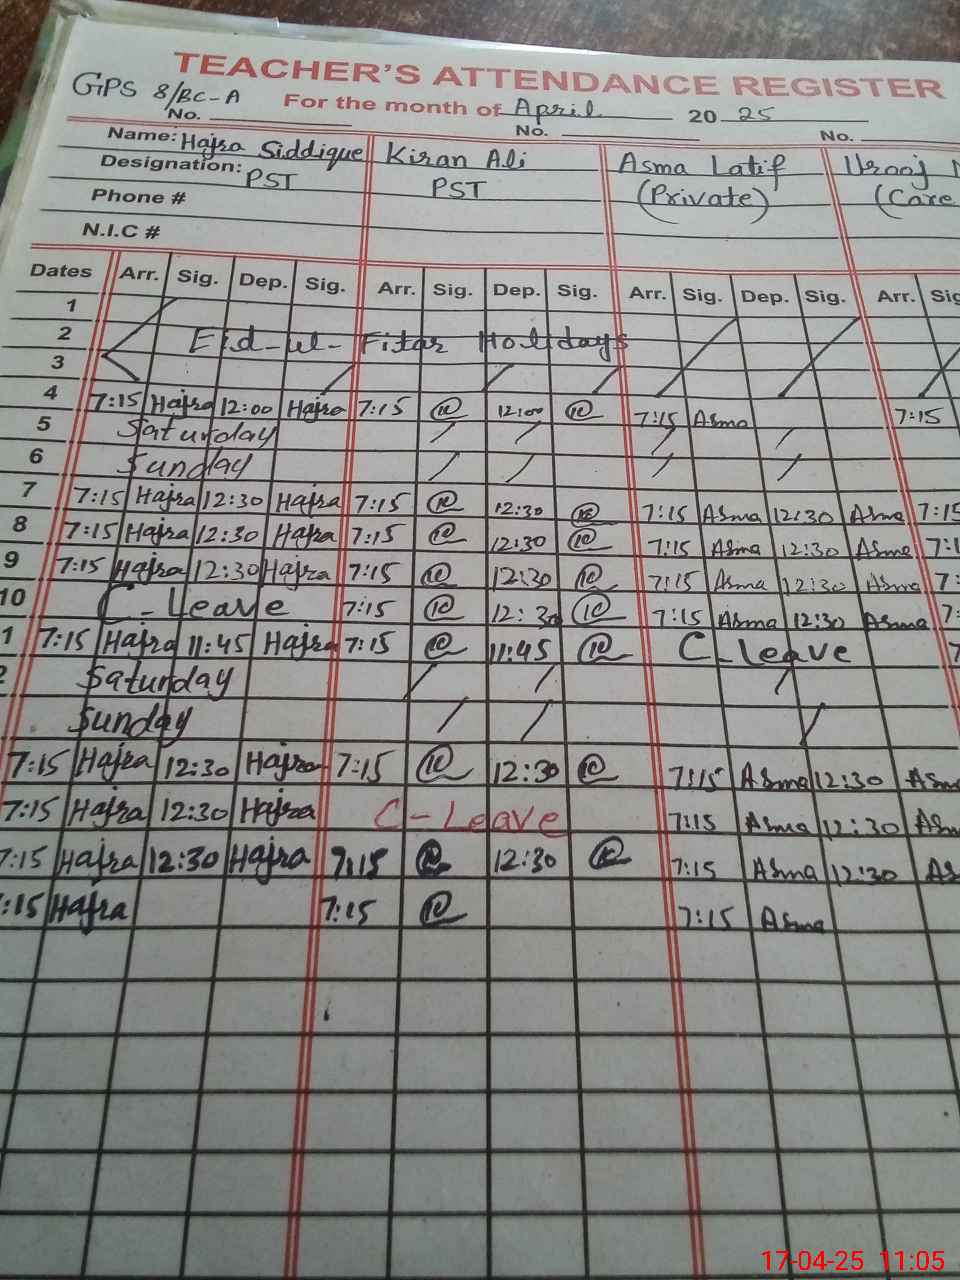 TEACHER'S ATTENDANCE REGISTER
GPS 8/BC-A For the month of April 20 25
No. No. No.
Name: Hajra Siddique Kiran Ali Asma Latif Urooj
Designation: PST PST (Private) (Care
Phone #
N.I.C #
Dates Arr. Sig. Dep. Sig. Arr. Sig. Dep. Sig. Arr. Sig. Dep. Sig. Arr. Sig
1
2 Eid-ul-Fitar Holidays
3
4 7:15 Hajra 12:00 Hajra 7:15 12:00 7:15 Asma 7:15
5 Saturday
6 Sunday
7 7:15 Hajra 12:30 Hajra 7:15 12:30 7:15 Asma 12:30 Asma 7:15
8 7:15 Hajra 12:30 Hajra 7:15 12:30 7:15 Asma 12:30 Asma 7:1
9 7:15 Hajra 12:30 Hajra 7:15 12:30 7:15 Asma 12:30 Asma 7:
10 C-Leave 7:15 12:30 7:15 Asma 12:30 Asma 7:
1 7:15 Hajra 11:45 Hajra 7:15 11:45 C-leave 7
2 Saturday
Sunday
7:15 Hajra 12:30 Hajra 7:15 12:30 7:15 Asma 12:30 Asma
7:15 Hajra 12:30 Hajra C-Leave 7:15 Asma 12:30 Asm
7:15 Hajra 12:30 Hajra 7:15 12:30 7:15 Asma 12:30 As
:15 Hajra 7:15 7:15 Asma
17-04-25 11:05